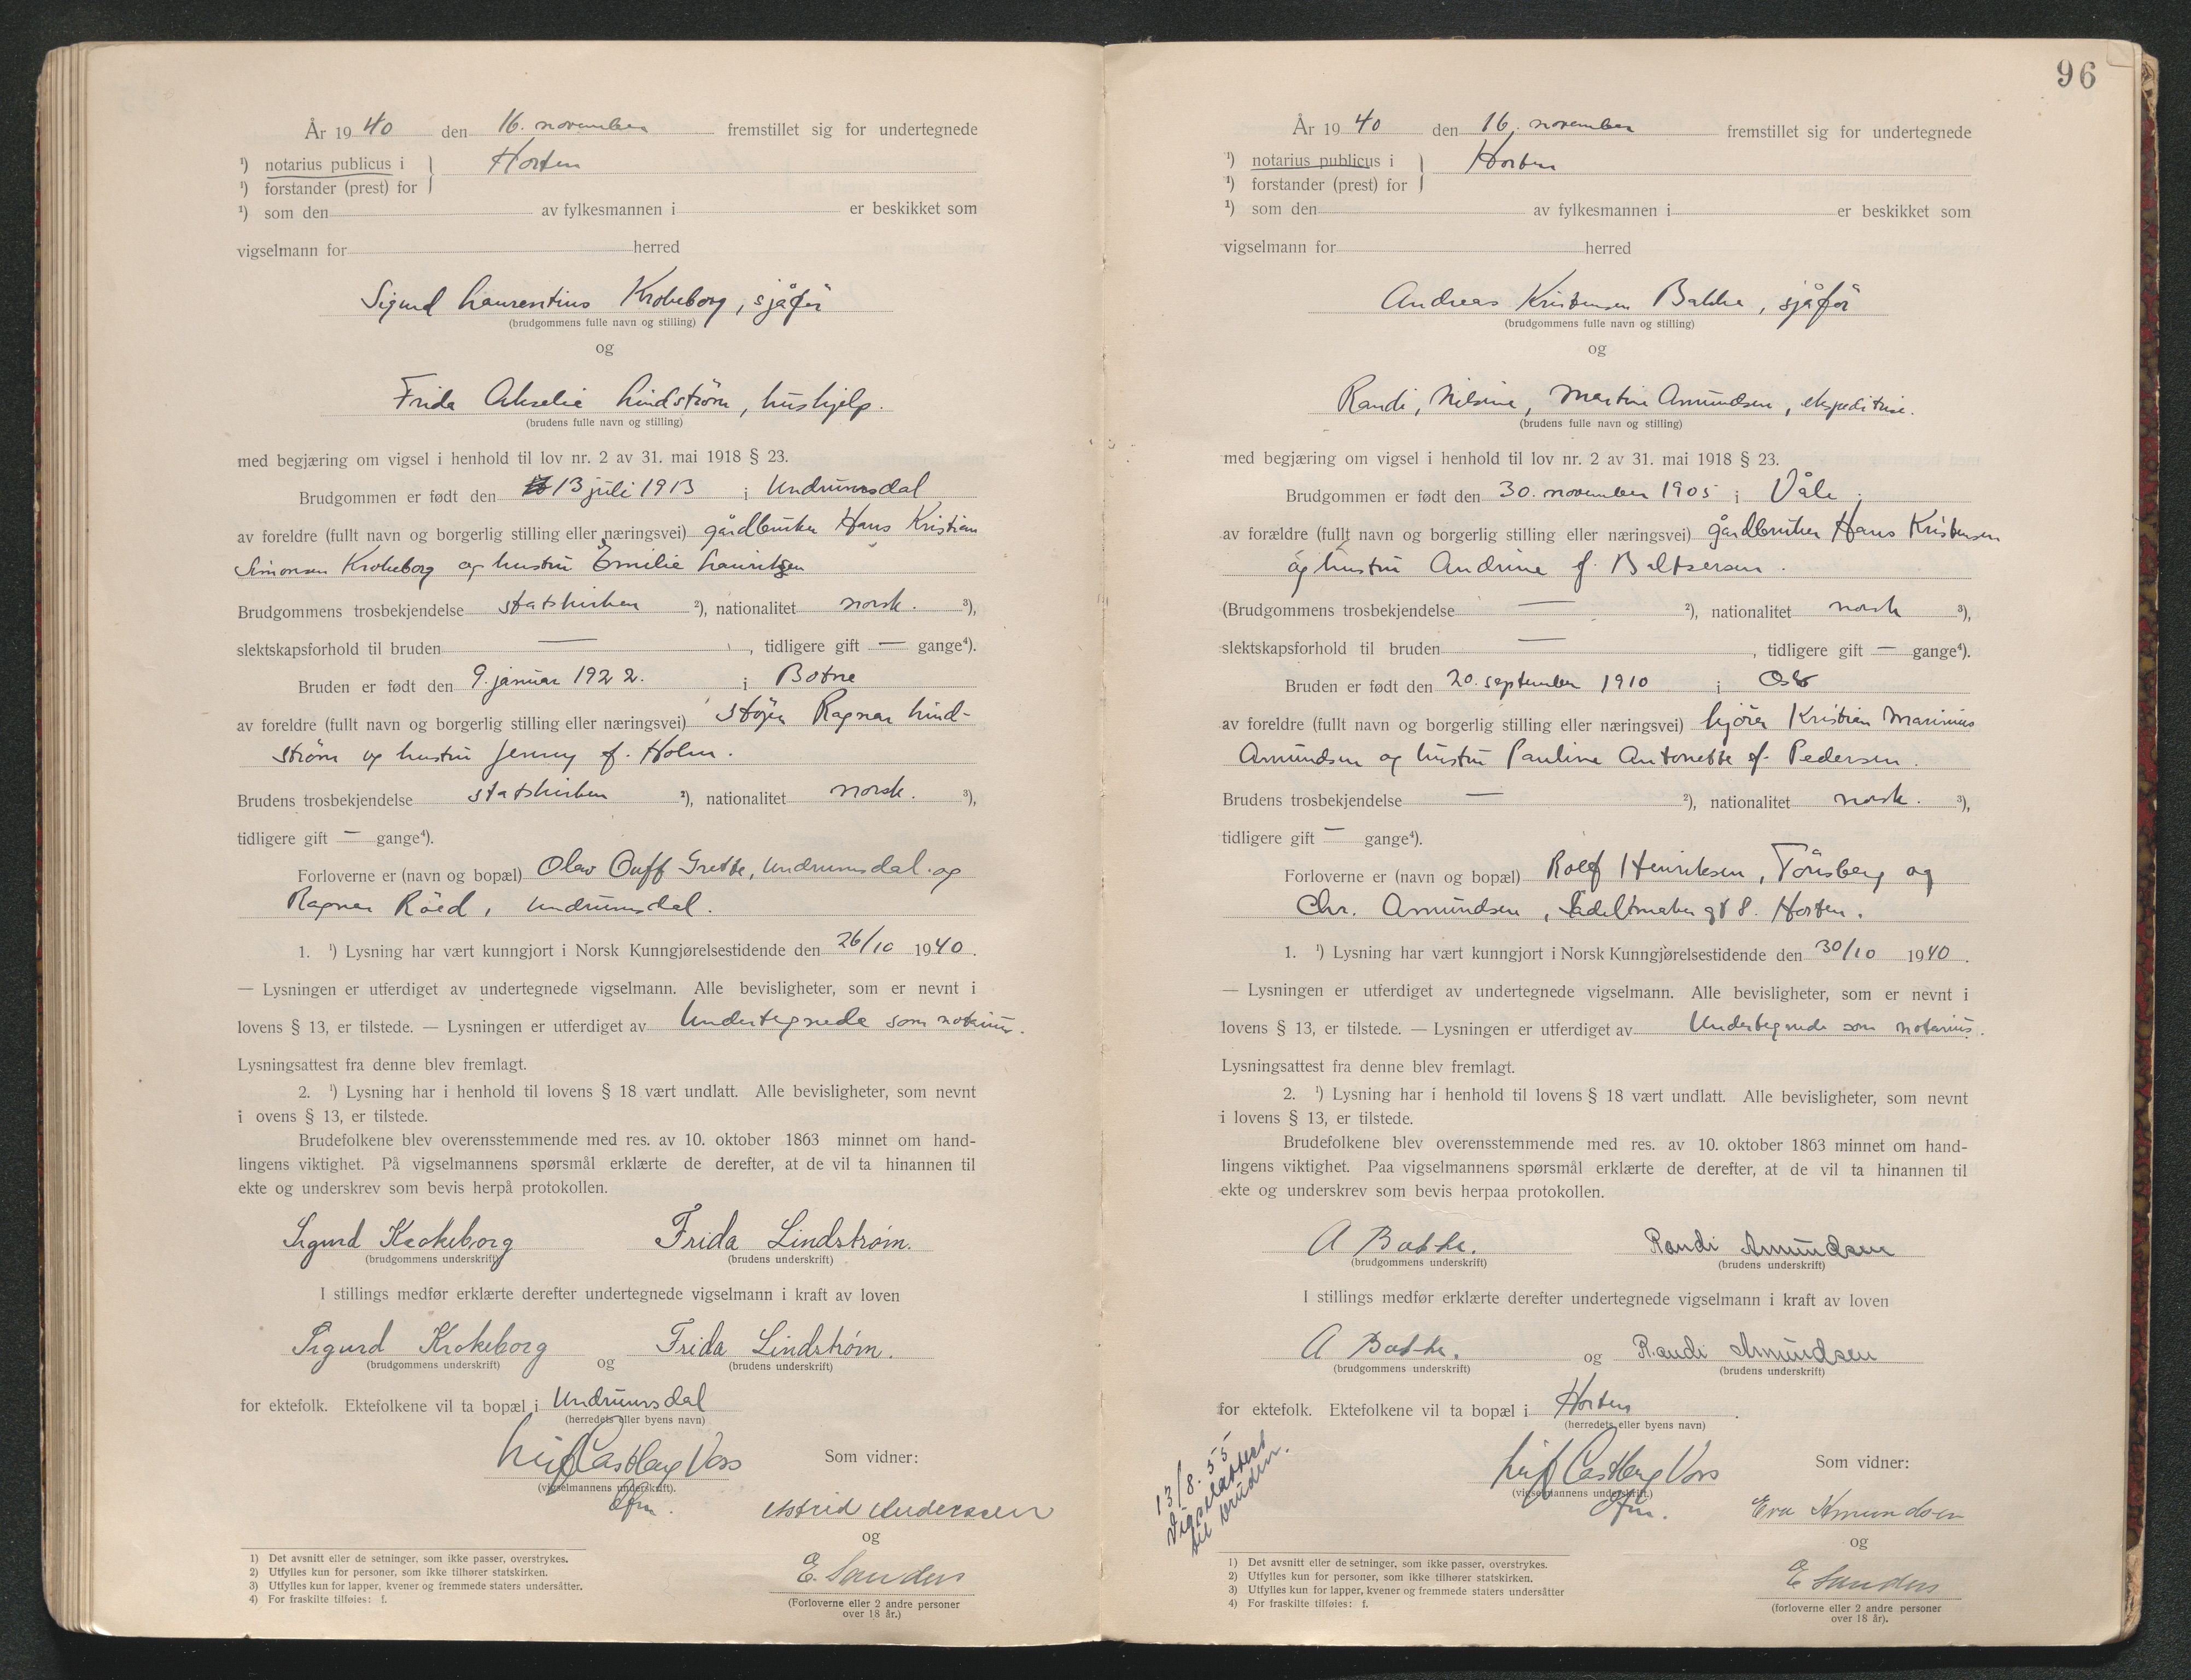 År 1940 den 16. november fremstillet sig for undertegnede
¹) notarius publicus i } Horten
¹) forstander (prest) for
¹) som den av fylkesmannen i er beskikket som
vigselmann for herred
Sigurd Laurentius Krokeborg, sjåfør
(brudgommens fulle navn og stilling)
og
Frida Akselie Lindstrøm, hushjelp.
(brudens fulle navn og stilling)
med begjæring om vigsel i henhold til lov nr. 2 av 31. mai 1918 § 23.
Brudgommen er født den 13 juli 1913 i Undrumsdal
av foreldre (fullt navn og borgerlig stilling eller næringsvei) gårdbruker Hans Kristian
Simonsen Krokeborg og hustru Emilie Lauritsen
Brudgommens trosbekjendelse statskirken ²), nationalitet norsk. ³),
slektskapsforhold til bruden — , tidligere gift — gange⁴).
Bruden er født den 9. januar 1922. i Botne
av foreldre (fullt navn og borgerlig stilling eller næringsvei) Ragnar Lind-
strøm og hustru Jenny f. Holm.
Brudens trosbekjendelse statskirken ²), nationalitet norsk. ³),
tidligere gift — gange⁴).
Forloverne er (navn og bopæl) Olav Grette, Undrumsdal og
Ragnar Röed, Undrumsdal.
1. ¹) Lysning har vært kunngjort i Norsk Kunngjørelsestidende den 26/10 1940.
— Lysningen er utferdiget av undertegnede vigselmann. Alle bevisligheter, som er nevnt i
lovens § 13, er tilstede. — Lysningen er utferdiget av Undertegnede som notarius.
Lysningsattest fra denne blev fremlagt.
2. ¹) Lysning har i henhold til lovens § 18 vært undlatt. Alle bevisligheter, som nevnt
i ovens § 13, er tilstede.
Brudefolkene blev overensstemmende med res. av 10. oktober 1863 minnet om hand-
lingens viktighet. På vigselmannens spørsmål erklærte de derefter, at de vil ta hinannen til
ekte og underskrev som bevis herpå protokollen.
Sigurd Krokeborg Frida Lindstrøm.
(brudgommens underskrift) (brudens underskrift)
I stillings medfør erklærte derefter undertegnede vigselmann i kraft av loven
Sigurd Krokeborg og Frida Lindstrøm.
(brudgommens underskrift) (brudens underskrift)
for ektefolk. Ektefolkene vil ta bopæl i Undrumsdal
(herredets eller byens navn)
Leif Castberg Vors Som vidner:
(vigselmannens underskrift).
Astrid Anderssen
og
E. Sanders
(Forloverne eller 2 andre personer
over 18 år.)
1) Det avsnitt eller de setninger, som ikke passer, overstrykes.
2) Utfylles kun for personer, som ikke tilhører statskirken.
3) Utfylles kun for lapper, kvener og fremmede staters undersåtter.
4) For fraskilte tilføies: f.
96
År 1940 den 16. november fremstillet sig for undertegnede
¹) notarius publicus i } Horten
¹) forstander (prest) for
¹) som den av fylkesmannen i er beskikket som
vigselmann for herred
Andreas Kristensen Bakke, sjåfør
(brudgommens fulle navn og stilling)
og
Randi, Nilsine, Martine Amundsen, ekspeditrise.
(brudens fulle navn og stilling)
med begjæring om vigsel i henhold til lov nr. 2 av 31. mai 1918 § 23.
Brudgommen er født den 30. november 1905 i Våle
av forældre (fullt navn og borgerlig stilling eller næringsvei) gårdbruker Hans Kristensen
og hustru Andrine f. Baltsersen.
(Brudgommens trosbekjendelse — ²), nationalitet norsk ³),
slektskapsforhold til bruden — , tidligere gift — gange⁴).
Bruden er født den 20. september 1910 i Oslo
av foreldre (fullt navn og borgerlig stilling eller næringsvei) kjører Kristian Marinius
Amundsen og hustru Pauline Antonette f. Pedersen.
Brudens trosbekjendelse — ²), nationalitet norsk. ³),
tidligere gift — gange⁴).
Forloverne er (navn og bopæl) Rolf Henriksen, Tönsberg og
Chr. Amundsen, Sadelmaker gt 8. Horten.
1. ¹) Lysning har vært kunngjort i Norsk Kunngjørelsestidende den 30/10 1940.
— Lysningen er utferdiget av undertegnede vigselmann. Alle bevisligheter, som er nevnt i
lovens § 13, er tilstede. — Lysningen er utferdiget av Undertegnede som notarius.
Lysningsattest fra denne blev fremlagt.
2. ¹) Lysning har i henhold til lovens § 18 vært undlatt. Alle bevisligheter, som nevnt
i lovens § 13, er tilstede.
Brudefolkene blev overensstemmende med res. av 10. oktober 1863 minnet om hand-
lingens viktighet. Paa vigselmannens spørsmål erklærte de derefter, at de vil ta hinannen til
ekte og underskrev som bevis herpaa protokollen.
A Bakke. Randi Amundsen
(brudgommens underskrift) (brudens underskrift)
I stillings medfør erklærte derefter undertegnede vigselmann i kraft av loven
A Bakke. og Randi Amundsen
(brudgommens underskrift) (brudens underskrift)
for ektefolk. Ektefolkene vil ta bopæl i Horten.
(herredets eller byens navn)
13/8.55
Vigselattest
til bruden.
Leif Castberg Vors Som vidner:
(vigselmannens underskrift.)
Eva Amundsen
og
E Sanders
(forloverne eller 2 andre personer
over 18 år).
1) Det avsnitt eller de setninger, som ikke passer, overstrykes.
2) Utfylles kun for personer, som ikke tilhører statskirken.
3) Utfylles kun for lapper, kvener og fremmede staters undersåtter
4) For fraskilte tilføies: f.